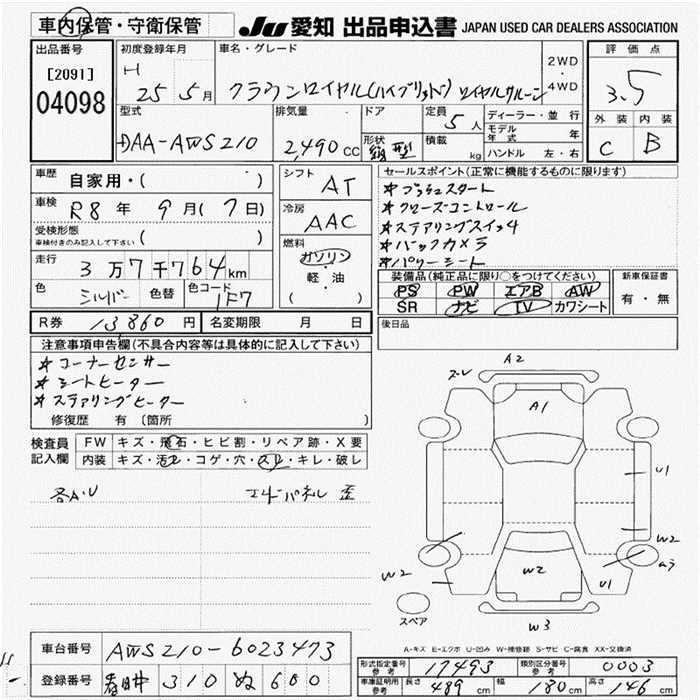 車内保管・守衛保管
JU 愛知 出品申込書 JAPAN USED CAR DEALERS ASSOCIATION
出品番号
[2091]
04098
初度登録年月
H
25 5月
車名・グレード
クラウンロイヤル(ハイブリッド) ロイヤルサルーン
2WD
・
4WD
評価点
3.5
外装 内装
C B
型式
DAA-AWS210
排気量
2,490 CC
ドア
形状
型
定員
5人
積載
kg
ディーラー・並行
モデル年式 年
ハンドル 左・右
車歴
自家用・( )
車検
R8年 9月(7日)
受検形態
車検付きのみ記入して下さい ( )
走行
3万7千764km
色
シルバー
色替
色コード
1F7
シフト
AT
冷房
AAC
燃料
ガソリン
・
軽・油
( )
セールスポイント(正常に機能するものに限ります)
*プッシュスタート
*クルーズコントロール
*ステアリングスイッチ
*バックカメラ
*パワーシート
装備品(純正品に限り○をつけてください)
PS PW エアB AW
SR ナビ TV カワシート
新車保証書
有・無
後日品
R券 13860円
名変期限 月 日
注意事項申告欄(不具合内容等は具体的に記入して下さい)
*コーナーセンサー
*シートヒーター
*ステアリングヒーター
修復歴 有 〔箇所 〕
検査員記入欄
FW キズ・飛石・ヒビ割・リペア跡・X要
内装 キズ・汚レ・コゲ・穴・スレ・キレ・破レ
各A・U
エンドパネル 歪
A2
A1
U1
W2
ムラ
U1
W2
W2
W3
スペア
A-キズ E-エクボ U-凹み W-補修跡 S-サビ C-腐食 XX-交換済
車台番号
AWS210-6023473
登録番号
春日井 310 ぬ 600
形式指定番号
参考
17493
類別区分番号
参考
0003
車庫証明用
参考
長さ 489 cm 幅 180 cm 高さ 146 cm